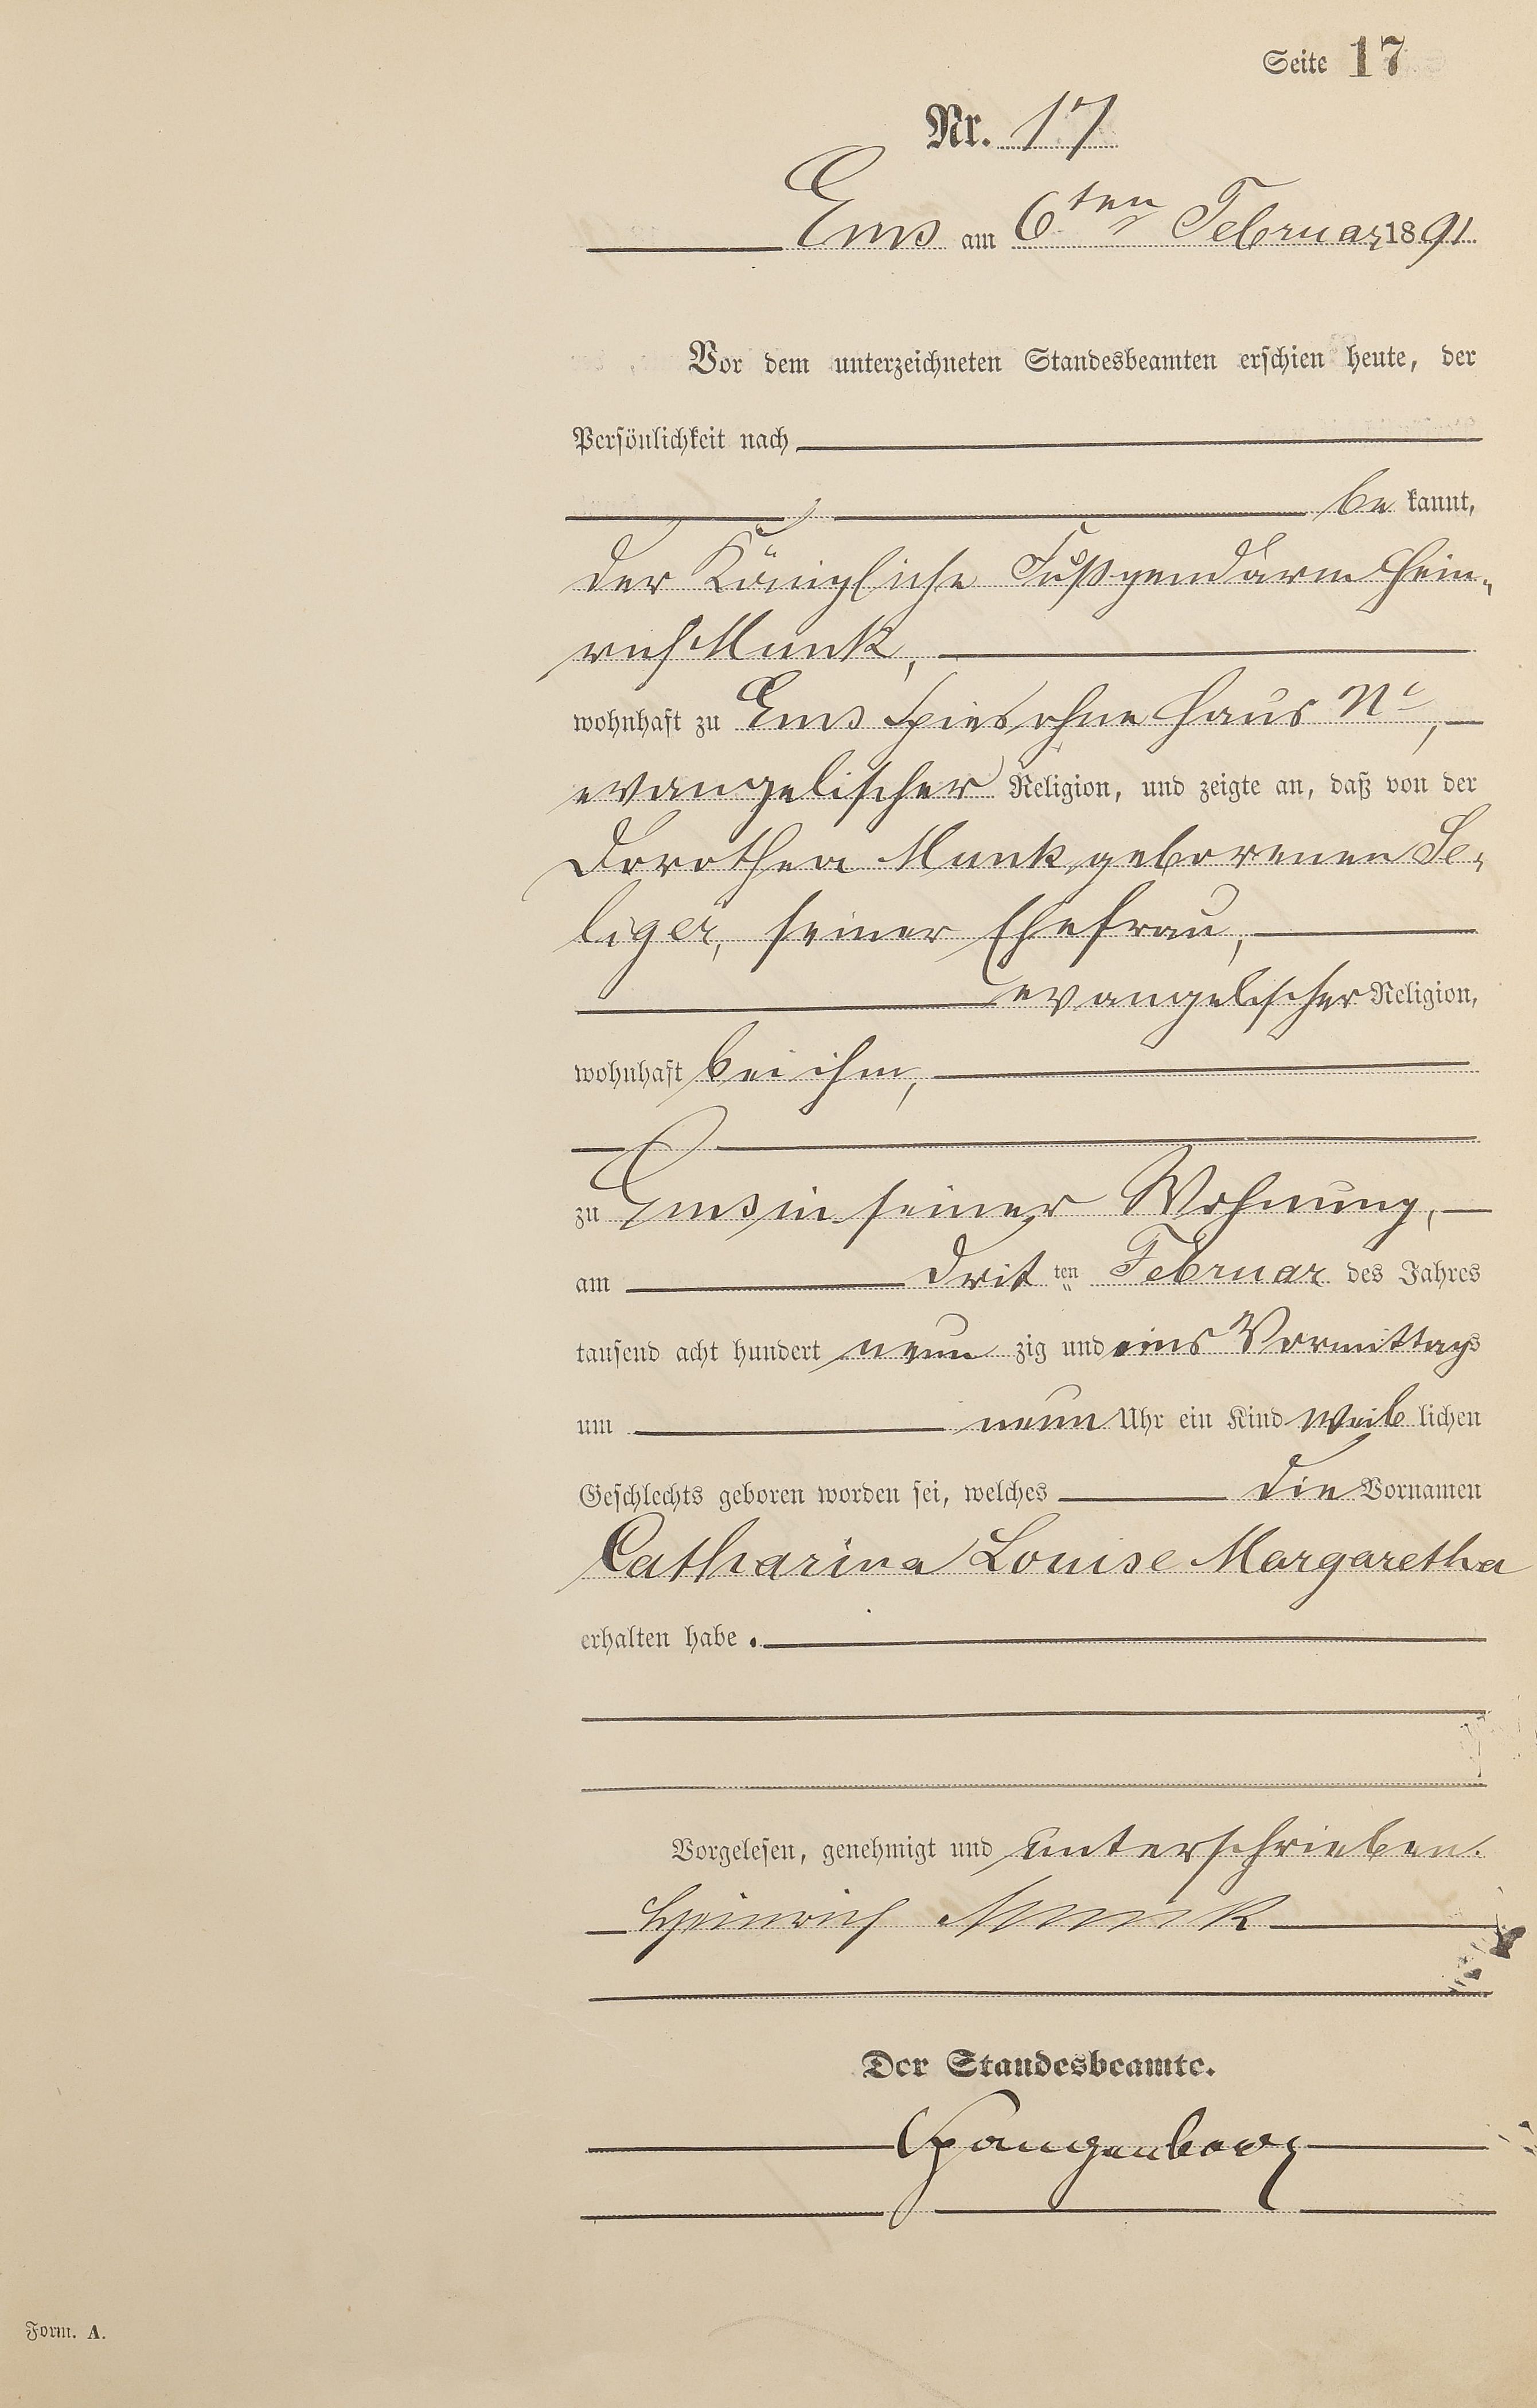 Seite 17
Nr. 17
Ems am 6ten Februar 1891
Vor dem unterzeichneten Standesbeamten erschien heute, der
Persönlichkeit nach
be kannt,
der Königliche Fußgendarm Hein-
rich Munk,
wohnhaft zu Ems Spies ohne Haus No,
evangelischer Religion, und zeigte an, daß von der
Dorothea Munk geborenen Se-
liger, seiner Ehefrau,
evangelischer Religion,
wohnhaft bei ihm,
zu Ems in seiner Wohnung,
am drit ten Februar des Jahres
tausend acht hundert neun zig und eins Vormittags
um neun Uhr ein Kind weib lichen
Geschlechts geboren worden sei, welches die Vornamen
Catharina Louise Margaretha
erhalten habe.
Vorgelesen, genehmigt und unterschrieben.
Heinrich Munk
Der Standesbeamte.
Spangenberg
Form. A.